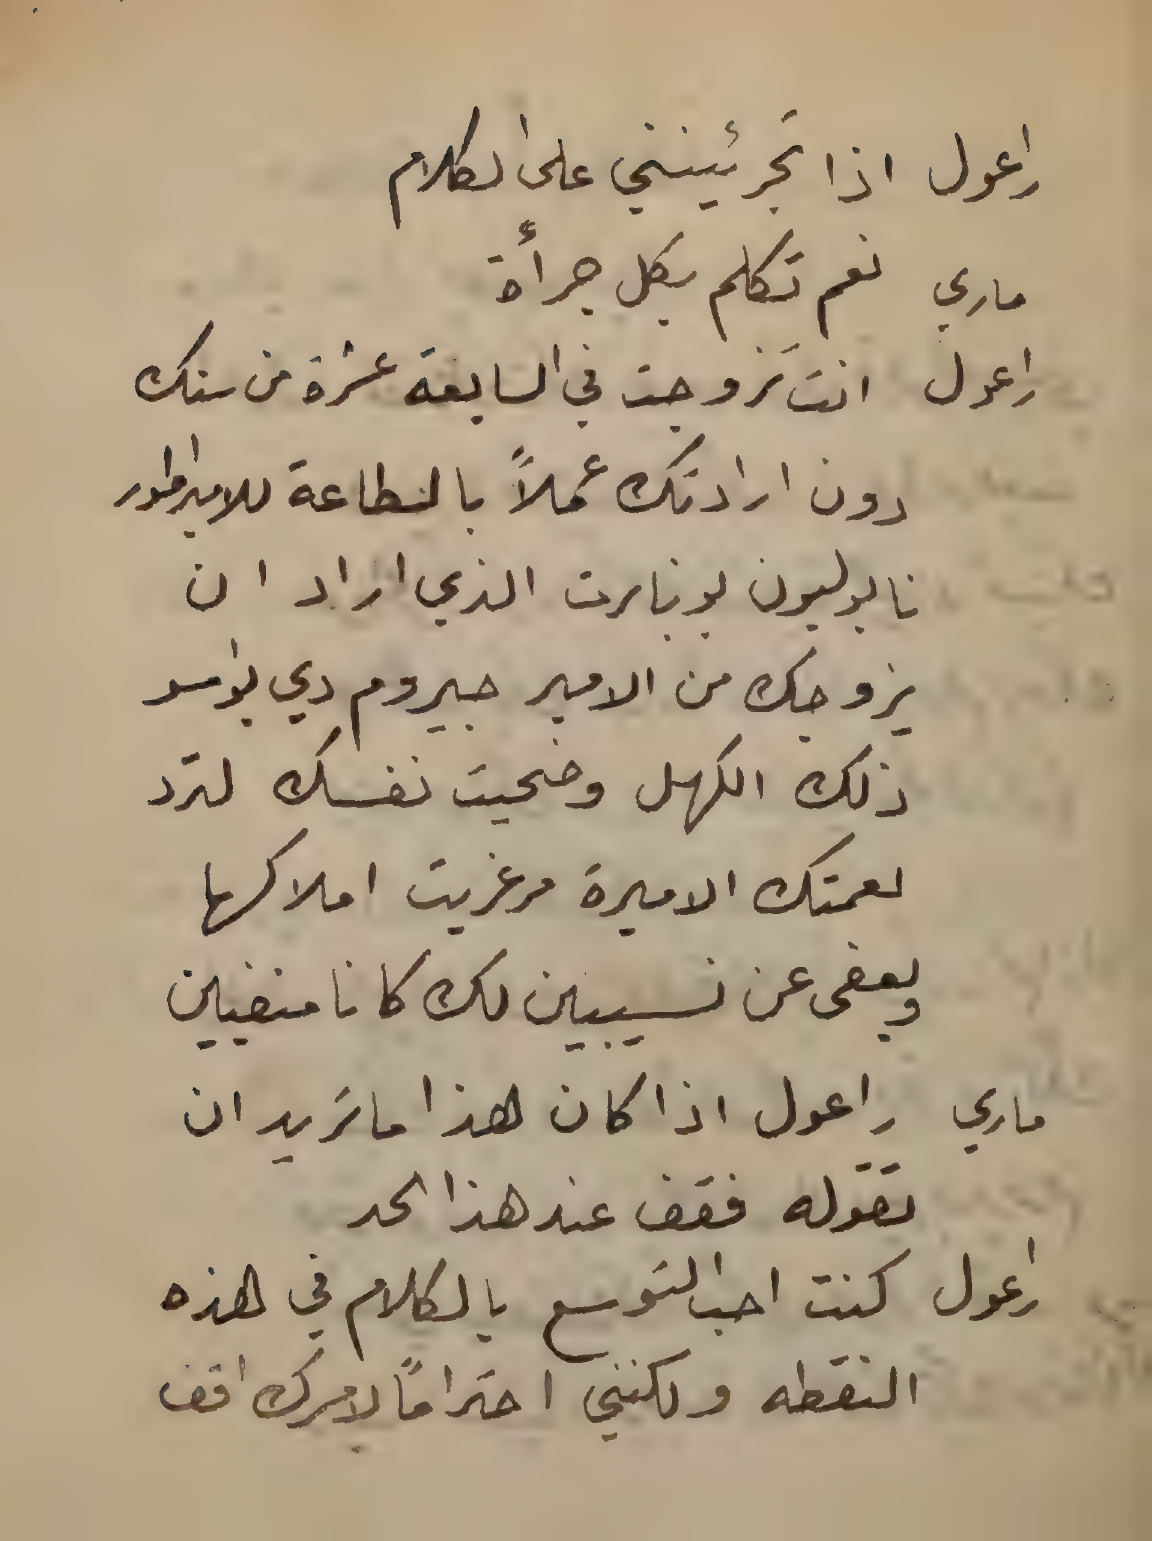 راعول اذا تجرئينني على الكلام
ماري نعم تكلم بكل جرأة
راعول انت تزوجت في السابعة عشرة من سنك
دون ارادتك عملاً بالنطاعة للامبراطور
نابوليون بونابرت الذي اراد ان
يزوجك من الامير جيروم دي
ذلك الكهل وضحيت نفسك لترد
لعمتك الاميرة مرغريت املاكها
ويعفى عن نسيبين لك كانا منفيين
ماري راعول اذا كان هذا ما تريد ان
تقوله فقف عند هذا الحد
راعول كنت احب التوسع بالكلام في هذه
النقطه ولكنني احتراماً لامرك اقف